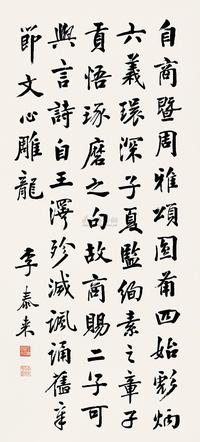 自商暨周雅頌圓備四始彪炳
六義環深子夏監絢素之章子
貢悟琢磨之句故商賜二子可
與言詩自王澤殄滅風誦舊章
節文心雕龍
李泰來